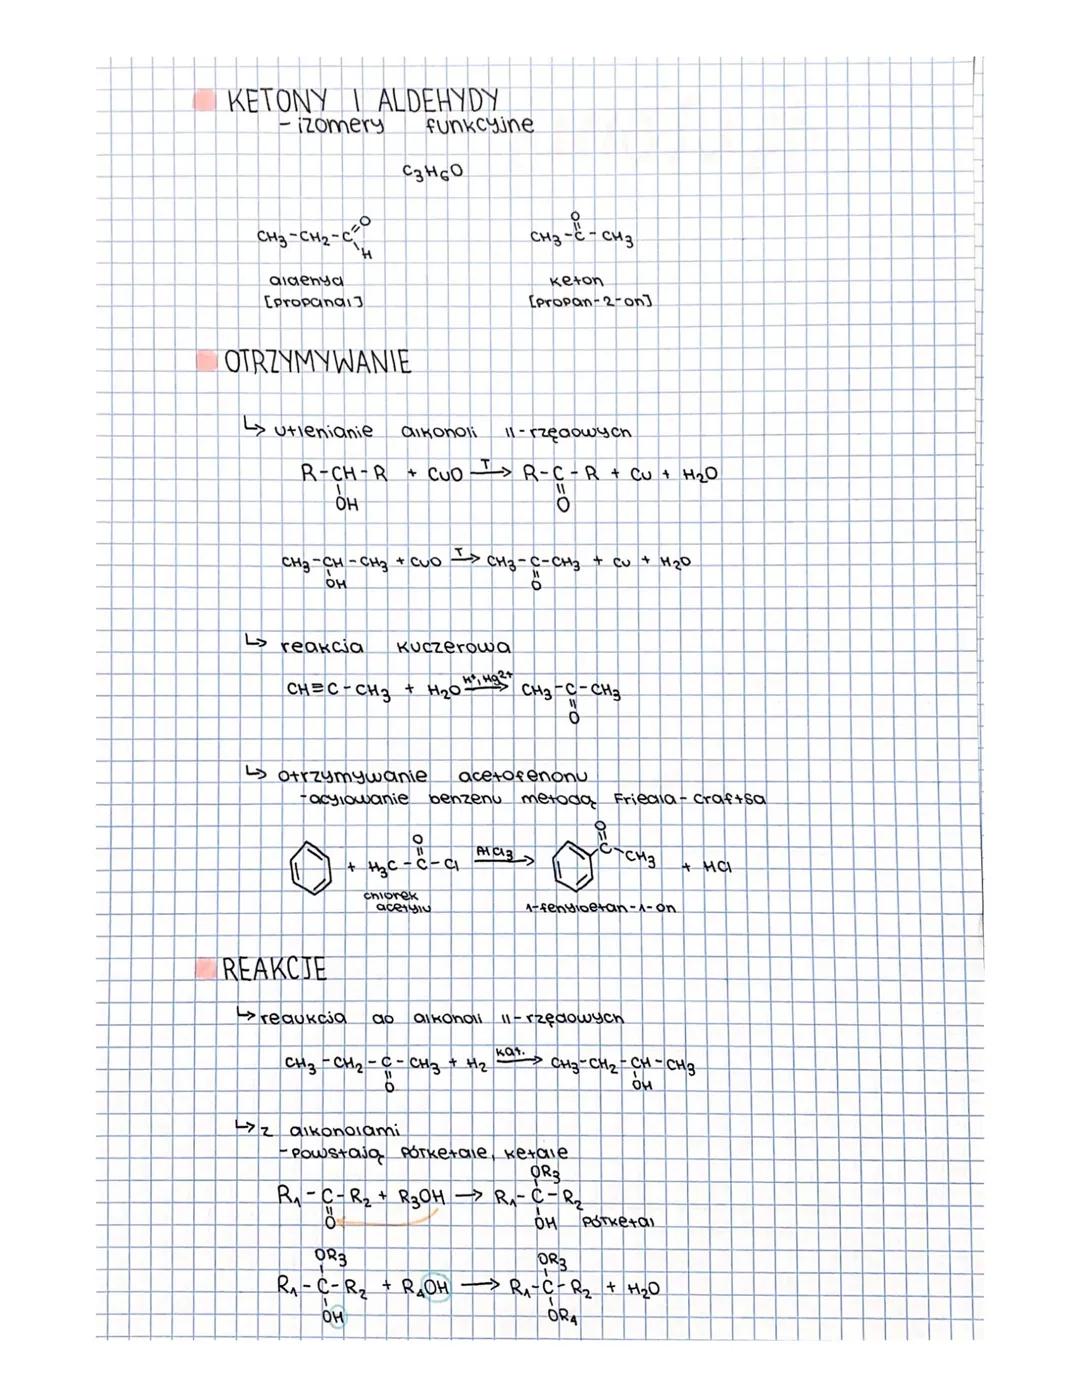 KETONY I ALDEHYDY
- izomery funkcyjne
C3H6O
O
CH3-CH2-C
H
O
CH3-C-CH3
aldehyd
keton
[propanal]
[propan-2-on]
OTRZYMYWANIE
↳ utlenianie alkoholi II-rzędowych
R-CH-R + CuO T→ R-C-R + Cu + H2O
OH
O
CH3-CH-CH3 + CuO T→ CH3-C-CH3 + Cu + H2O
OH
O
↳ reakcja Kuczerowa
CH≡C-CH3 + H2O H+, Hg2+→ CH3-C-CH3
O
↳ otrzymywanie acetofenonu
-acylowanie benzenu metodą Friedla-Craftsa
O
O
+ H3C-C-Cl AlCl3→ C-CH3 + HCl
chlorek
acetylu
1-fenyloetan-1-on
REAKCJE
↳ redukcja do alkoholi II-rzędowych
CH3-CH2-C-CH3 + H2 kat.→ CH3-CH2-CH-CH3
O
OH
↳ z alkoholami
-powstają półketale, ketale
OR3
R1-C-R2 + R3OH → R1-C-R2
O
OH półketal
OR3
OR3
R1-C-R2 + R4OH → R1-C-R2 + H2O
OH
OR4